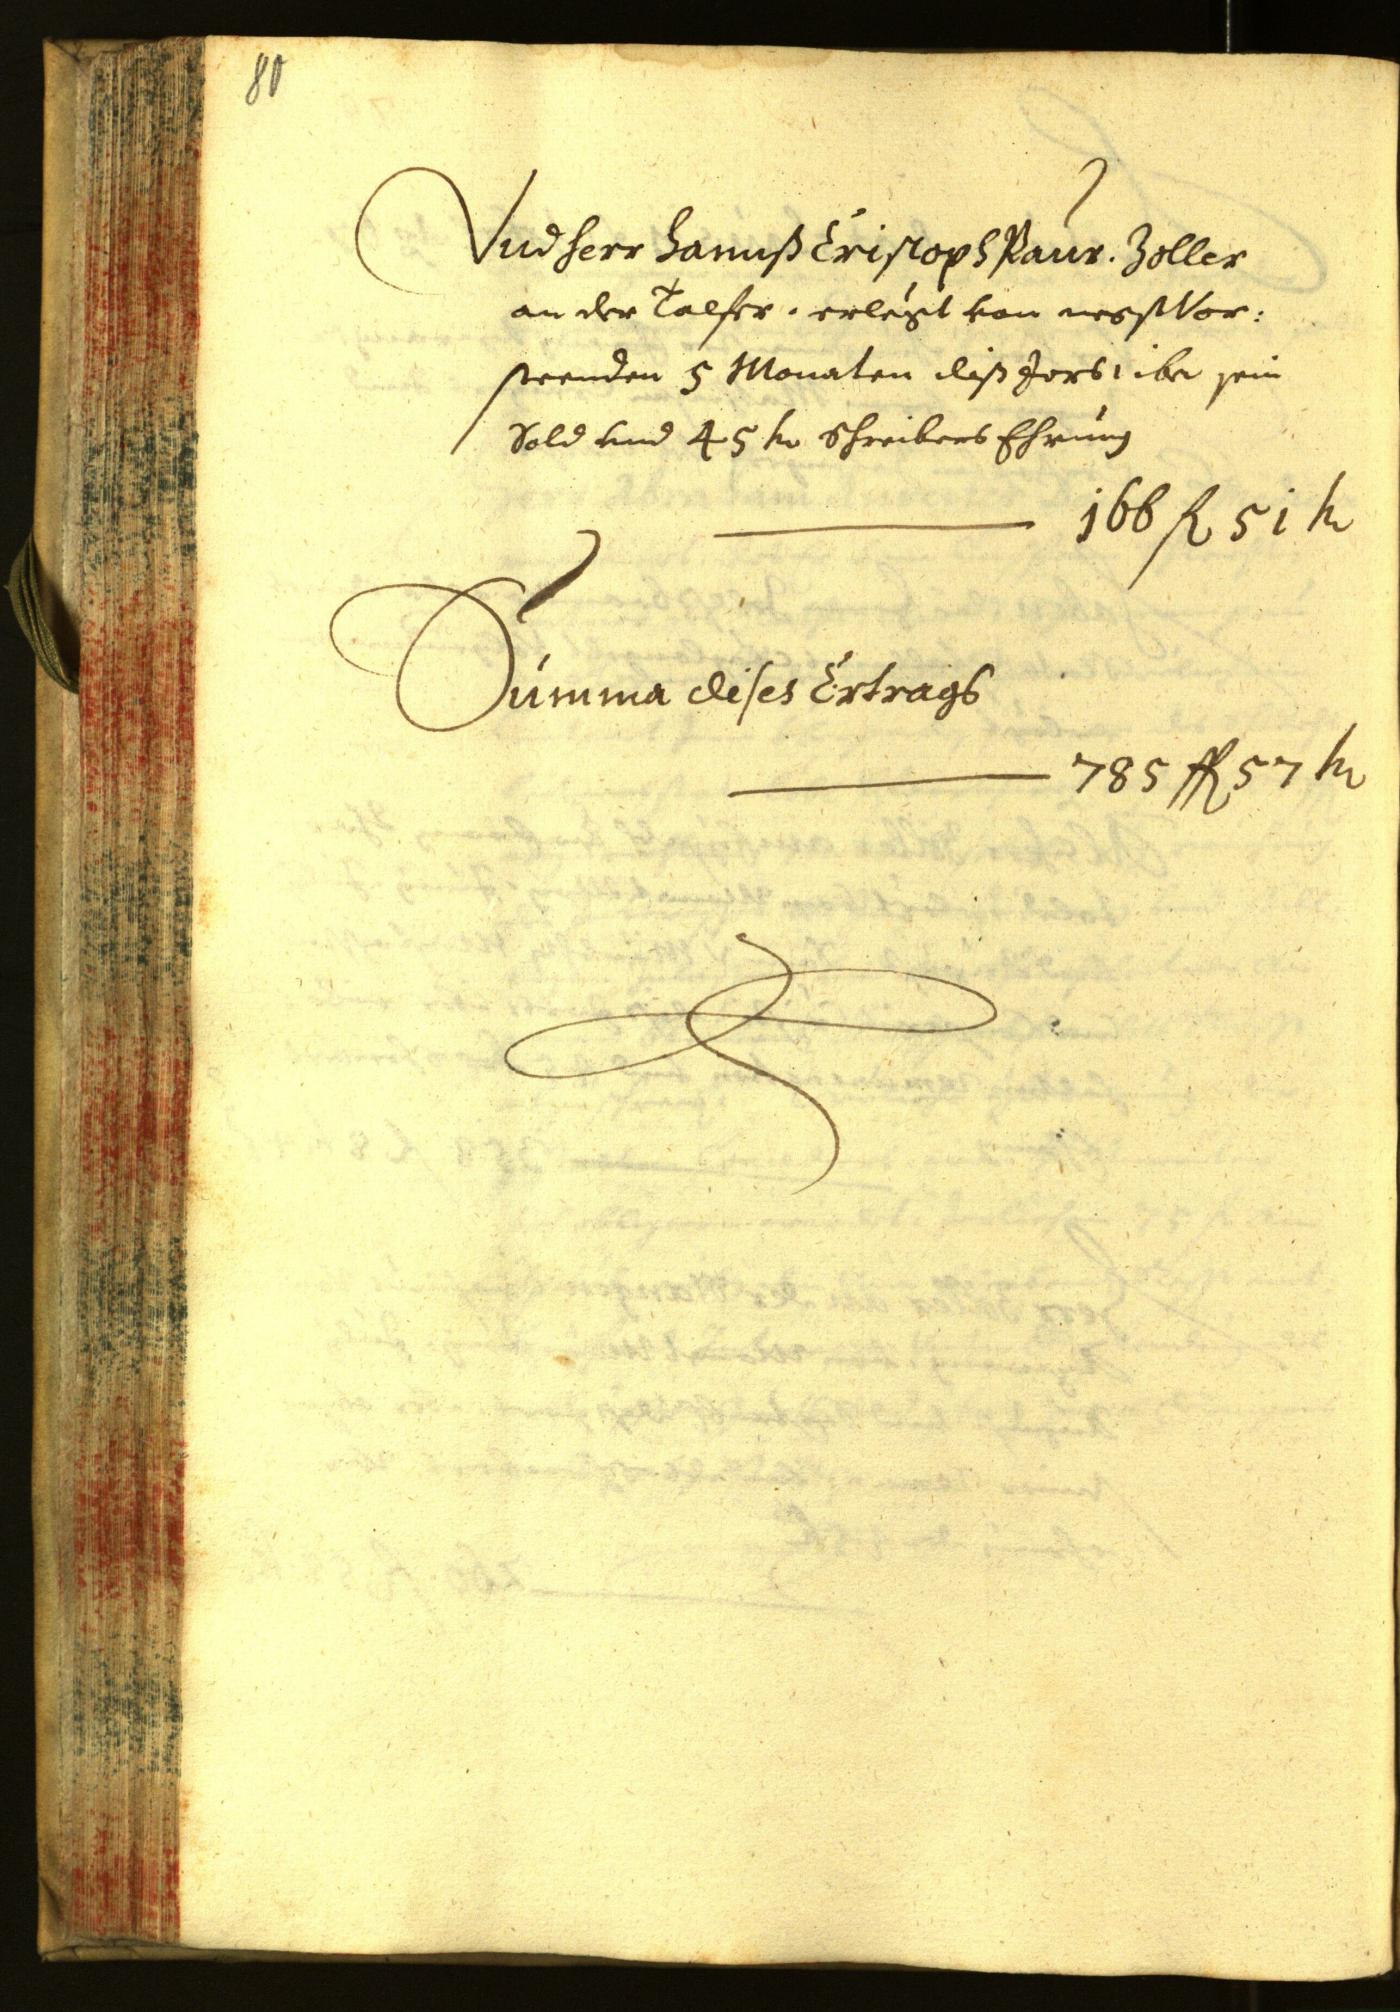 80
Vnd herr Hannß Cristoph Paur. Zoller
an der Talfer. erlegt von negst Vor:
steenden 5 Monaten diß Jars, iber sein
Sold vnd 45 kr Schreibers Ehrung
166 fl 51 kr
Summa dises Ertrags
785 fl 57 kr